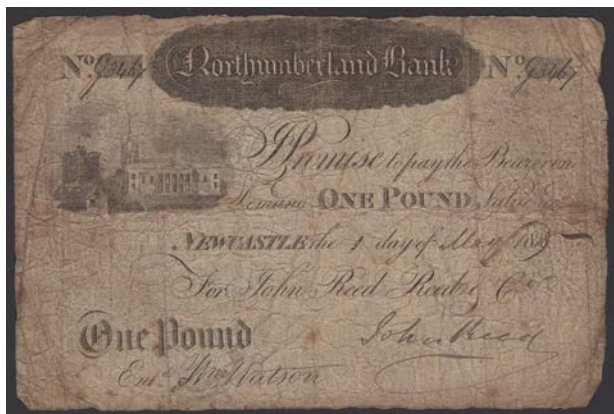 Northumberland Bank
No. G3467 No. G3467
I Promise to pay the Bearer on
Demand ONE POUND, Value
NEWCASTLE the 1 day of May
For John Reed Reed & Co.
One Pound John Reed
Entd. Wm Watson